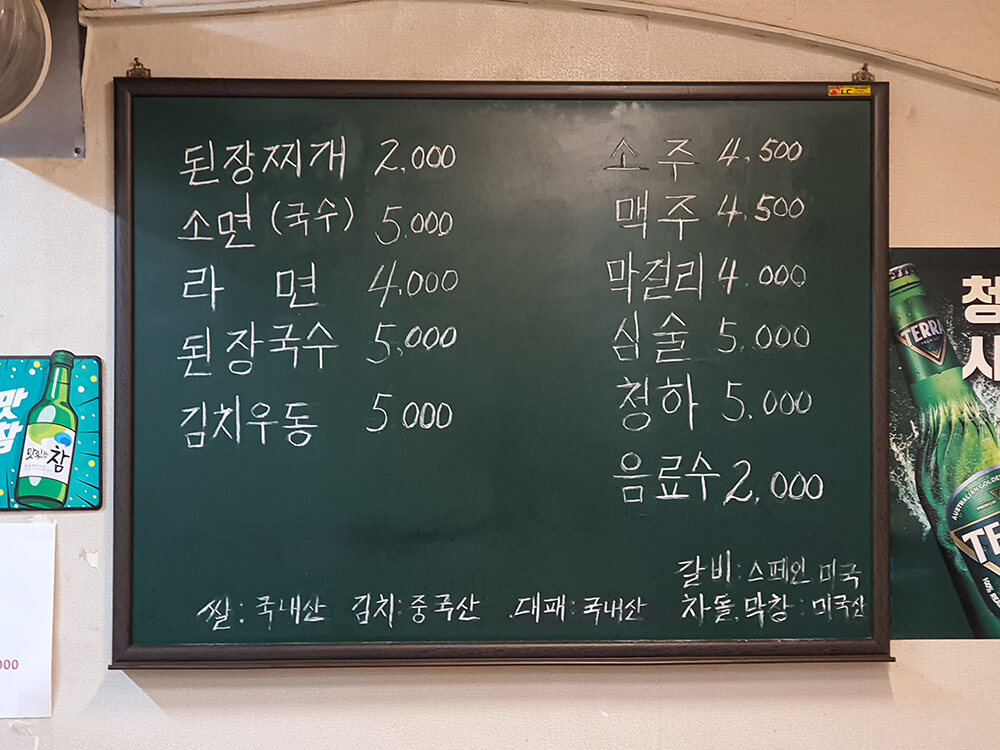 LC
된장찌개 2,000
소면(국수) 5.000
라 면 4,000
된장국수 5,000
김치우동 5000
소주 4,500
맥주 4,500
막걸리 4.000
심술 5,000
청하 5,000
음료수 2,000
갈비:스페인 미국
쌀:국내산 김치:중국산 대패:국내산 차돌.막창:미국산
맛
참
맛있는 참
000
청
TERRA
AUSTRALIAN GOLDE
TE
100%